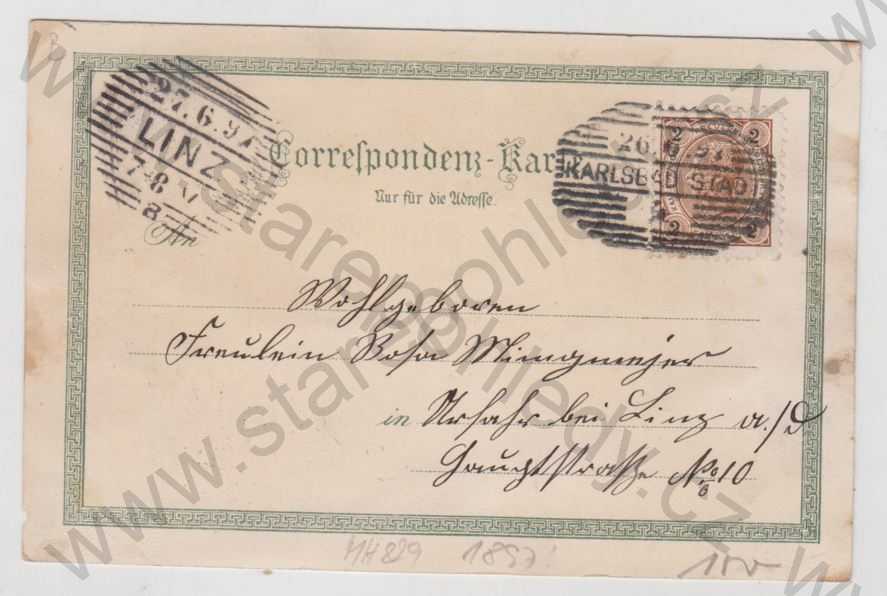 27.6.97
LINZ
7-8 V
a
Correspondenz-Karte
Nur für die Adresse.
An
26. 6. 97
KARLSBAD STADT
2 2
2 2
Wohlgeboren
Freulein Rosa Mingmejer
in Urfahr bei Linz a./D
Hauptstraße No 10
MH829 1897!
100-
www.starepohledy.cz